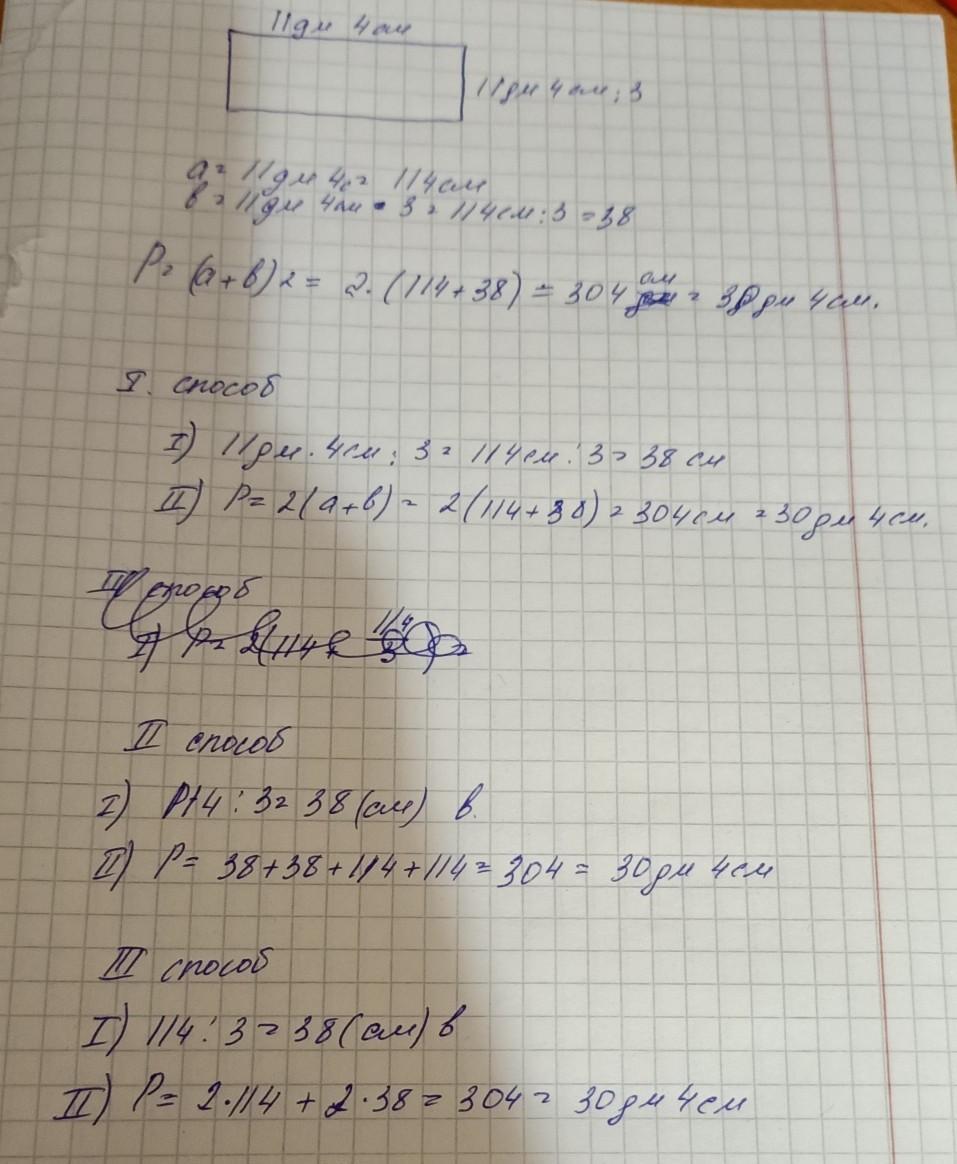 11дм 4см
11дм 4см : 3
a = 11дм 4с = 114см
в = 11дм 4см : 3 = 114см : 3 = 38
P = (a + в) 2 = 2 · (114 + 38) = 304 см = 30дм 4см.
I. способ
I) 11дм. 4см : 3 = 114см : 3 = 38 см
II) P = 2(a + в) = 2(114 + 38) = 304см = 30дм 4см.
II способ
I) P = 2(114 + 114/3) =
II способ
I) 114 : 3 = 38 (см) в.
II) P = 38 + 38 + 114 + 114 = 304 = 30дм 4см
III способ
I) 114 : 3 = 38 (см) в
II) P = 2·114 + 2·38 = 304 = 30дм 4см